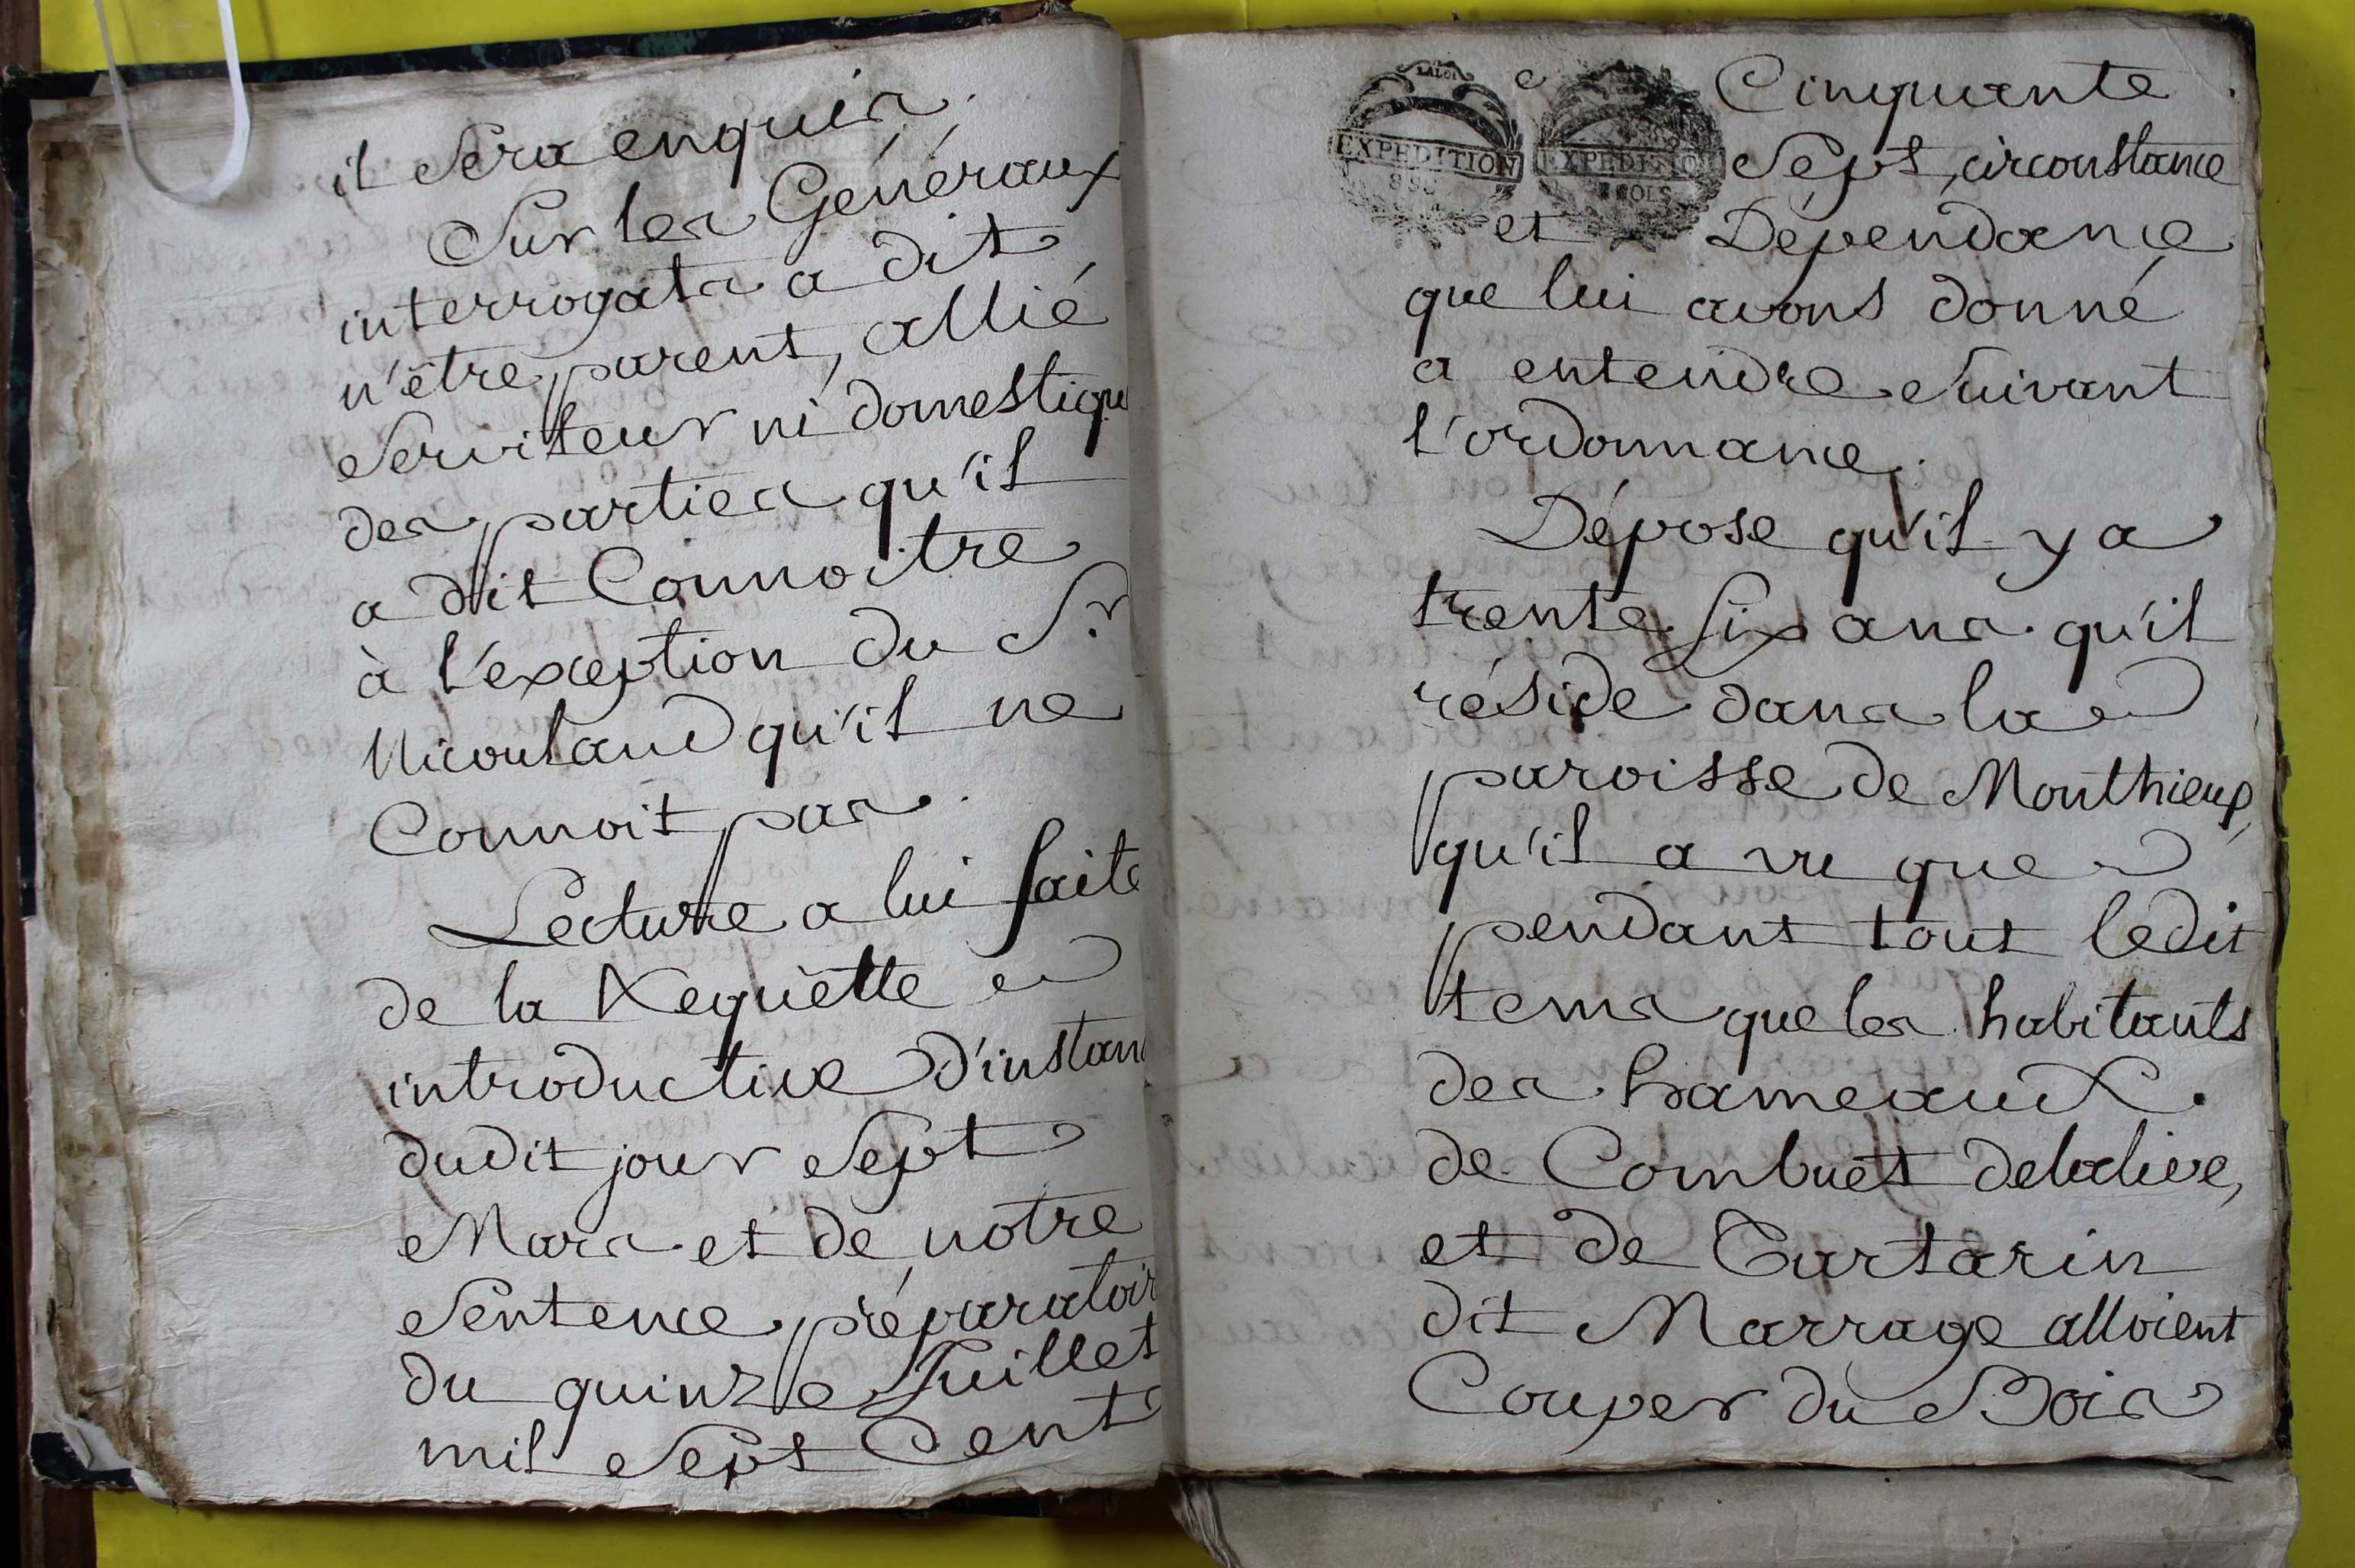 il sera enquis.
Sur les Généraux
interrogats a dit
n'être parent, allié
Serviteur ni domestiqu
des parties qu'il
a dit Connoitre
à l'exception du Sr
Nicouland qu'il ne
Connoit pas.
Lecture a lui faite
de la Requêtte
introductive d'instan
dudit jour Sept
Mars et de notre
Sentence préparatoir
du quinze Juillet
mil Sept Cent
LA LOI
EXPEDITION
8 SO
EXPEDITION
8 SOLS
Cinquante
Sept, circonstance
et Dépendance
que lui avons donné
a entendre Suivant
l'ordonnance.
Dépose qu'il y a
trente Six ans qu'il
réside dans la
paroisse de Monthieux,
qu'il a vu que
pendant tout ledit
tems que les habitants
des hameaux.
de Combuet delalive,
et de Tartarin
dit Marrage alloient
Couper du Bois